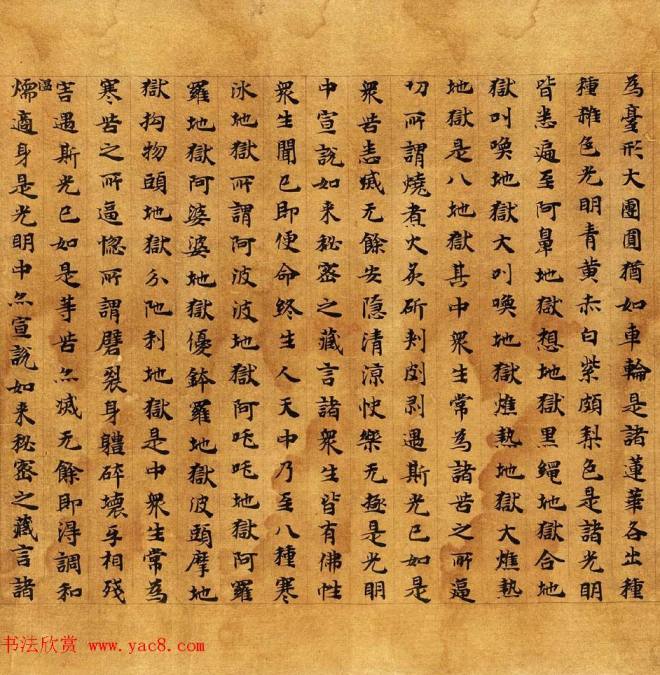 為臺形大團圓猶如車輪是諸蓮華各出種
種雜色光明青黃赤白紫頗梨色是諸光明
皆悉遍至阿鼻地獄想地獄黑繩地獄合地
獄叫喚地獄大叫喚地獄燋熱地獄大燋熱
地獄是八地獄其中衆生常為諸苦之所逼
切所謂燒煮火炙斫刺㓟剥遇斯光已如是
衆苦悉滅无餘安隱清涼快樂无極是光明
中宣說如来秘密之藏言諸衆生皆有佛性
衆生聞已即便命終生人天中乃至八種寒
氷地獄所謂阿波波地獄阿吒吒地獄阿羅
羅地獄阿婆婆地獄優鉢羅地獄波頭摩地
獄拘物頭地獄分陁利地獄是中衆生常為
寒苦之所逼惱所謂劈裂身軆碎壞乎相殘
害遇斯光已如是等苦亦滅无餘即得調和
温
㬉適身是光明中亦宣說如来秘密之藏言諸
书法欣赏 www.yac8.com